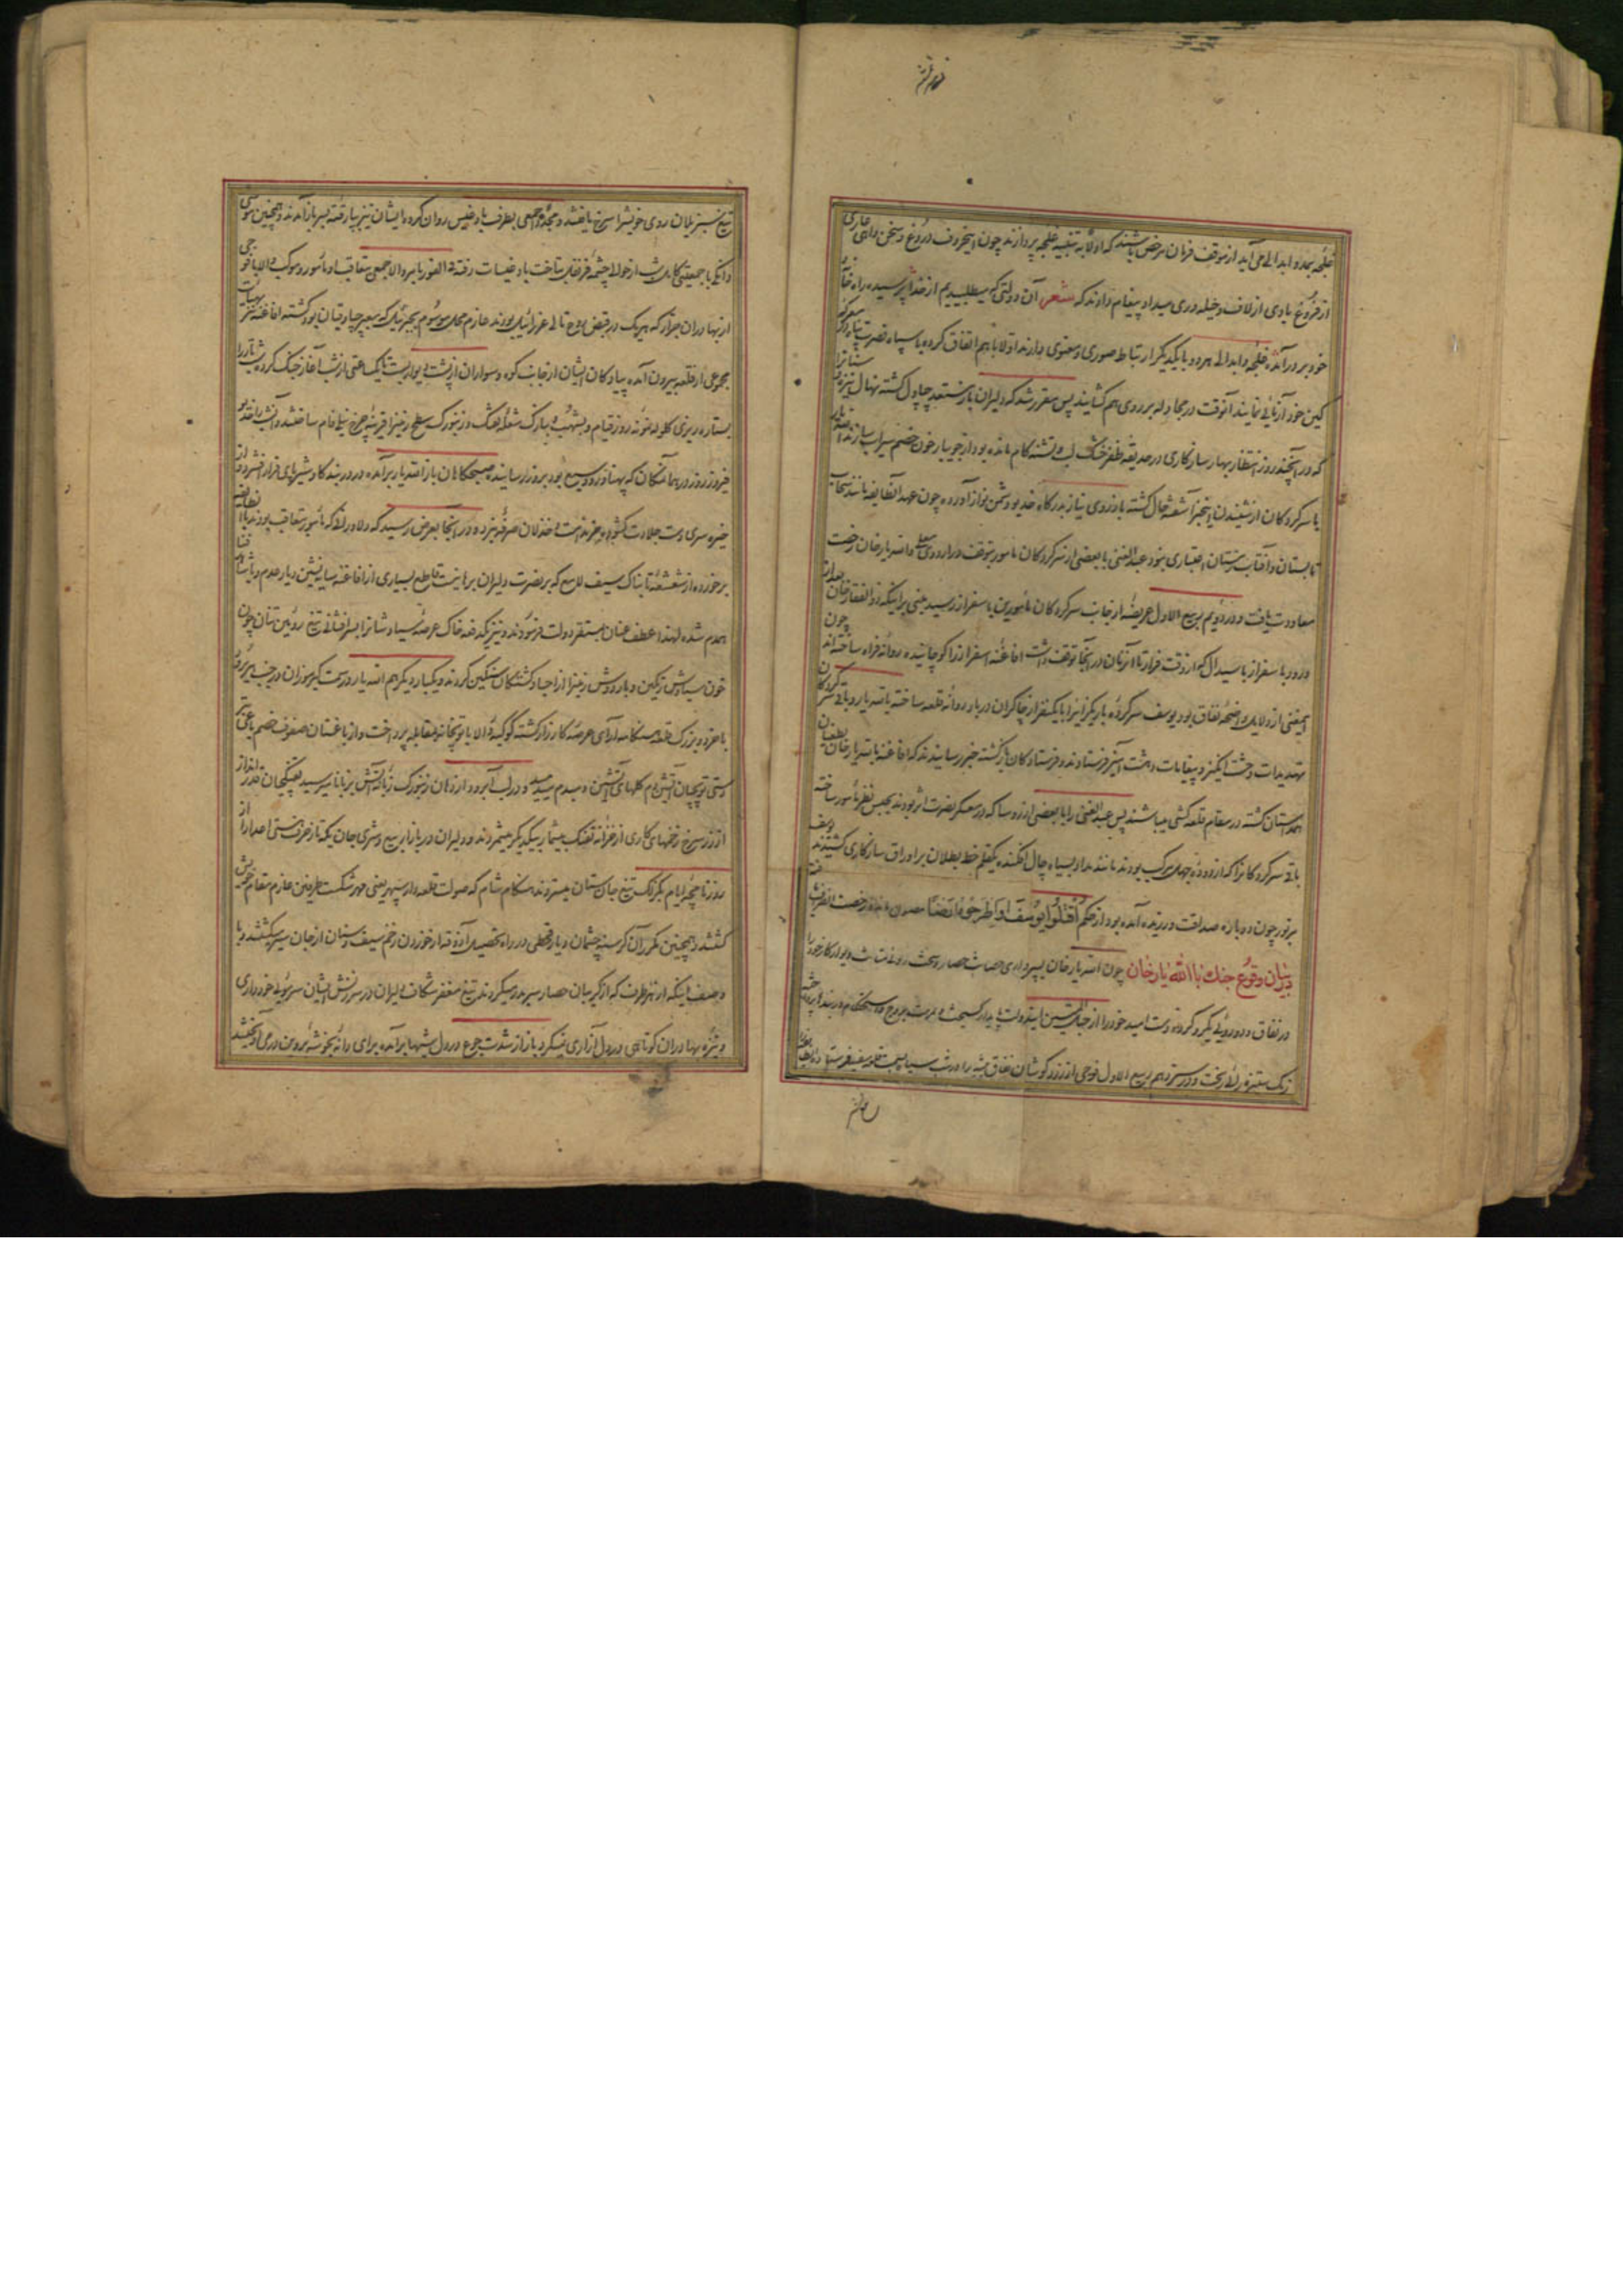 غلجه بمدد ابدالی می آید از موقف فرمان مرخص باشند که اولا به تنبیه غلجه پردازند چون اینحروف دروغ و سخن واهی عاری
از فروغ یادی از لاف و حیله وری میداد پیغام دادند که شعر آن دولتی که میطلبیدیم از خدا پرسیده راه خانه
خود بر در آمد غلجه و ابدالی هر دو با یکدیگر ارتباط صوری و معنوی دارند اولا باهم اتفاق کرده با سپاه نصرت پناه در معرکه
کین خود آزمائی نمایند آنوقت در مجادله بر روی هم کشایند پس مقرر شد که دلیران باز مستعد چپاول کشته نهال نیزه
که در آنچند روز انتظار بهار سازکاری در حدیقه ظفر خشک لب و تشنه کام مانده بود از جویبار خون خصم سیراب سازند
یا سرکردکان از شنیدن اینخبر آشفته حال کشته باز روی نیاز بدرکاه خدیو دشمن نواز آورده چون عهد آنطایفه مانند سحاب
تابستان و آفتاب زمستان اعتباری نبود عبدالغنی با بعضی از سرکردکان مامور بتوقف در اردوی معلی و الله یار خان رخصت
معاودت یافت و در دویم ربیع الاول عریضه از جانب سرکردکان مامورین باسفراز رسید مبنی بر اینکه ذوالفقار خان
ورود باسفراز با سیدال که از وقت فرار تا آنزمان در آنجا توقف داشت افاغنه اسفراز را کوچانیده روانه فراه ساخته اند چون
اینمعنی از دلایل واضحه نفاق بود یوسف سرکرده باریکزائی را با یکنفر از چاکران دربار روانه قلعه ساخته بالله یار و باقی سرکردکان
تهدیدات وحشت انگیز و پیغامات دهشت آمیز فرستادند و فرستادکان بازکشته خبر رسانیدند که افاغنه با الله یار خان
همداستان کشته در مقام قلعه کشی میباشند پس عبدالغنی را با بعضی از روسا که در معسکر نصرت اثر بودند بحبس نظر مامور ساخته
باقی سرکردکانرا که از دوده جهل مرکب بودند مانند مداد بسیاه چال افکنده یکقلم خط بطلان بر اوراق سازکاری کشیدند یوسف
مزبور چون دوباره صداقت ورزیده آمده بود از حکم اقتلوا یوسف او اطرحوه ارضا مصون مانده رخصت انصراف یافت
در بیان وقوع جنك با الله یار خان چون الله یار خان بسپرداری حصانت حصار و سخت روئی متانت دیوار کار خود را
در نفاق و دوروئی یکرو کرد و دست امید خود را از حبل المتین ایندولت پایدار کسیخت و بمرمت بروج و استحکام دربندها پرداخته
رنک ستیزه را ریخت و در سیزدهم ربیع الاول فوجی از زرد کوشان نفاق پیشه را در شب سیاه بسمت قلعه سفید فرستاد
تیغ سبز یلان روی خویشرا سرخ یافتند و مجددا جمعی بطرف بادغیس روان کرده ایشان نیز بپا رفته بسر باز آمدند و همچنین موسی
دانکی با جمعیتی کامل شب از حوالی چشمه قزقان بتاخت بادغیسات رفته فی الفور بامر والا جمعی بتعاقب او مامور و موکب والا با فوجی
از بهادران جرار که هر یک در قبض روح تالی عزرائیل بودند عازم محل موسوم بخیرتال که معبر چپاوقیان بود کشته افاغنه نیز
مجموعی از قلعه بیرون آمده پیادکان ایشان از جانب کوه و سواران از پشت دیوار بست تا یک ساعتی از شب آغاز جنک کرده شب تار را
بستاره ریزی کلوله نمونه روز قیام و بشهب بارک شعله آهنک و زنبورک سطح زمین را قرینه چرخ نیلی فام ساختند و آنشب را خدیو
فیروز روز در همان مکان که پهناور و وسیع بود بروز رسانیده صبحکاهان باز الله یار برآمده در دربند کاوشیر پای قرار فشرده از
خیره سری دست جلادت کشود اما بجز ندامت و خذلان صرفه نبرده در آنجا بعرض رسید که دلاورانی که مامور بتعاقب بودند بآنطایفه
برخورده از شعشعه تابناک سیف لامع که بر نصرت دلیران برهانیست قاطع بسیاری از افاغنه سایه نشین دیار عدم و با شام فنا
همدم شده لهذا عطف عنان بمستقر دولت فرمودند و نیز یکدفعه خاک عرصه سیاوشانرا بسرافشانی تیغ روئین تنان چون
خون سیاوش رنکین و بار دوش زمینرا از اجساد کشتکان سنکین کردند و یکبار دیکر هم الله یار و دست کبیر سوران در جنب
با خرد و بزرک قلعه هنکامه آرای عرصه کارزار کشته کوکبه والا با توپخانه بمقابله پرداخت و از باغستان صفوف خصم باغی
دستی توپچیان آتش دم کلهای آتشین دمیدم میدمید و در لب آبرود از دهان زنبورک زبانه آتش بزبانا میرسید
از زر سرخ زخمهای کاری از خزانه تفنک بیشمار بیکدیکر میشمردند و دلیران در بازار بیع و شری جان یکه تاز حرف هستی اعدا را از
روزنامچه ایام بکزلک تیغ جان ستان میستردند هنکام شام که صولت قلعه دار سپهر یعنی مهر شکست طرفین عازم مقام خویش
کشتند و همچنین مکرر آن کرسنه چشمان دیار قحطی در راه تحصیل آذوقه از خوردن زخم سیف و سنان از جان سیر میکشتند و با
وصف اینکه از هر طرف که از کریبان حصار سر بدر میکردند تیغ مغفر شکاف دلیران در سرزنش ایشان سر موئی خودداری
و نیزه بهادران کوتاهی در دل آزاری نمیکرد باز از شدت جوع در دل شبها برآمده برای دانه بخوشه پروین در می آویختند